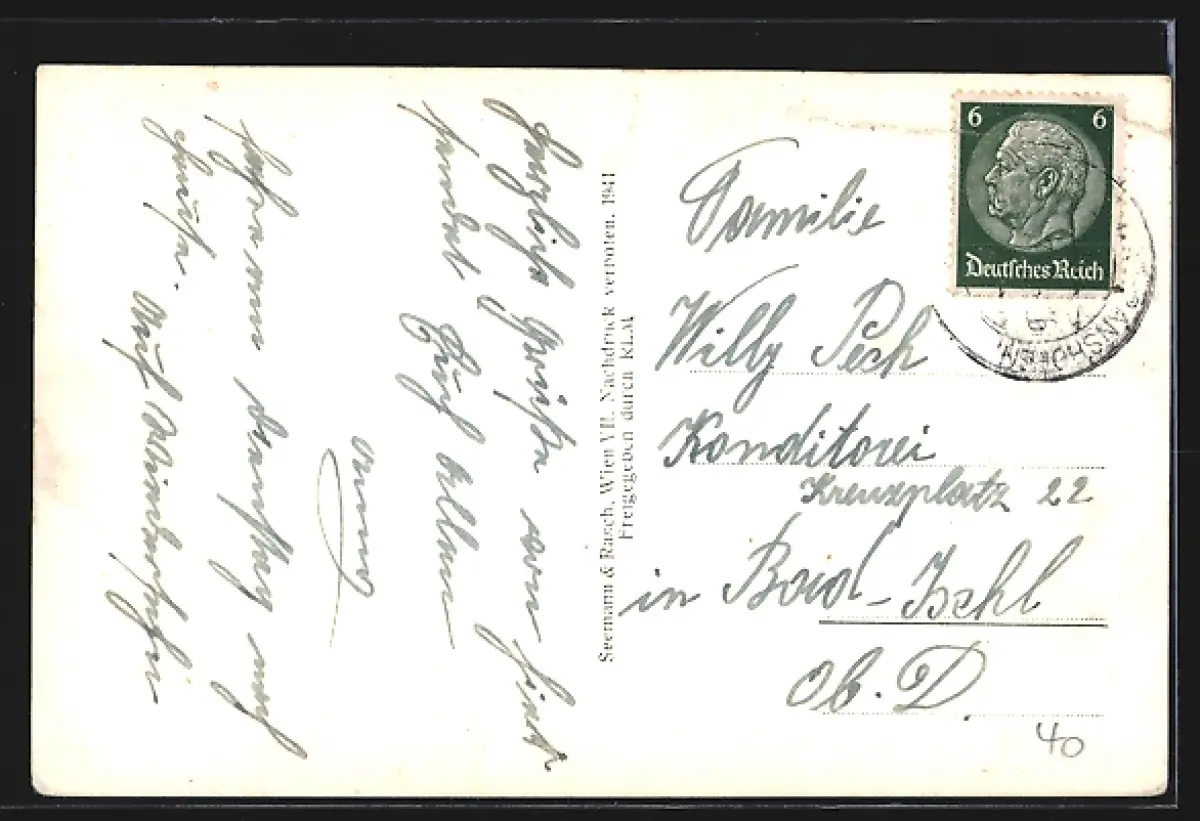 Herzliche Grüße von hier
sendet Euch Allen
Anny
Fahre am Samstag nach
Hause. Auf Wiedersehen
Seemann & Rasch, Wien VII. Nachdruck verboten. 1941
Freigegeben durch RLM
6 6
Deutsches Reich
Familie
Willy Pech
Konditorei
Kreuzplatz 22
in Bad-Ischl
Ob. D.
40